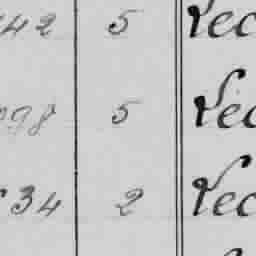 442 5 Vec
098 5 Vec
34 2 Vec